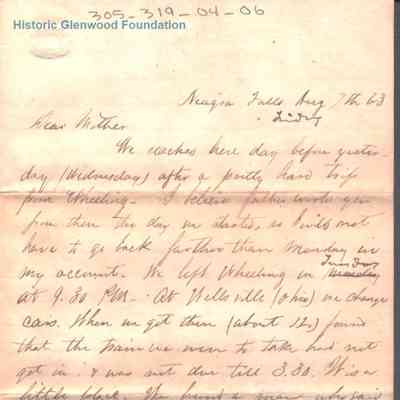 305-319-04-06
Historic Glenwood Foundation
Niagra Falls Aug 7th 63
Friday
Dear Mother
We reached here day before yester-
day (Wednesday) after a pretty hard trip
from Wheeling - I believe father wrote you
from there the day we started, so I will not
have to go back farther than Monday in
Tuesday
my account. We left Wheeling on Monday
at 9.30 P.M. - At Wellsville (Ohio) we change
cars. When we got there (about 12,) found
that the train we were to take had not
got in & was not due till 3.30. It is a
little place. We found a man who said